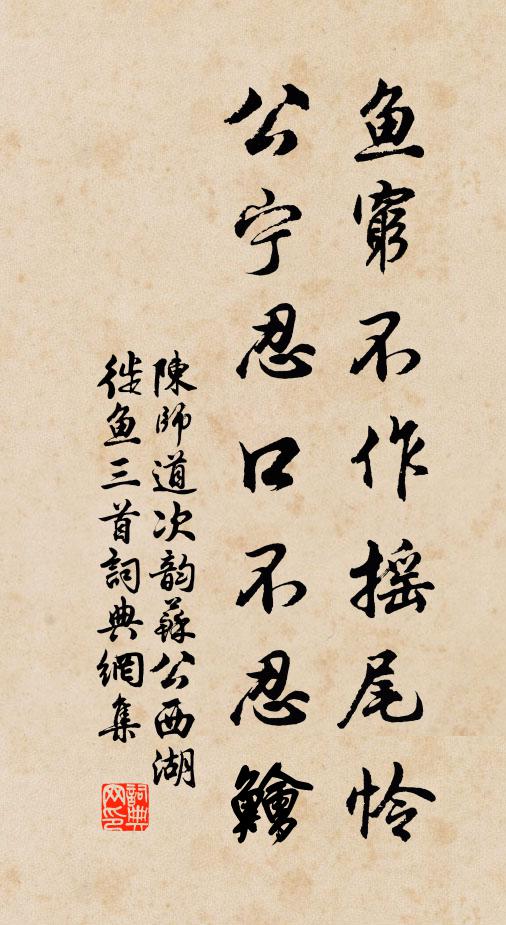 鱼窮不作摇尾怜
公宁忍口不忍鱠
陳師道次韵蘇公西湖
徙鱼三首詞典網集
詞典网印